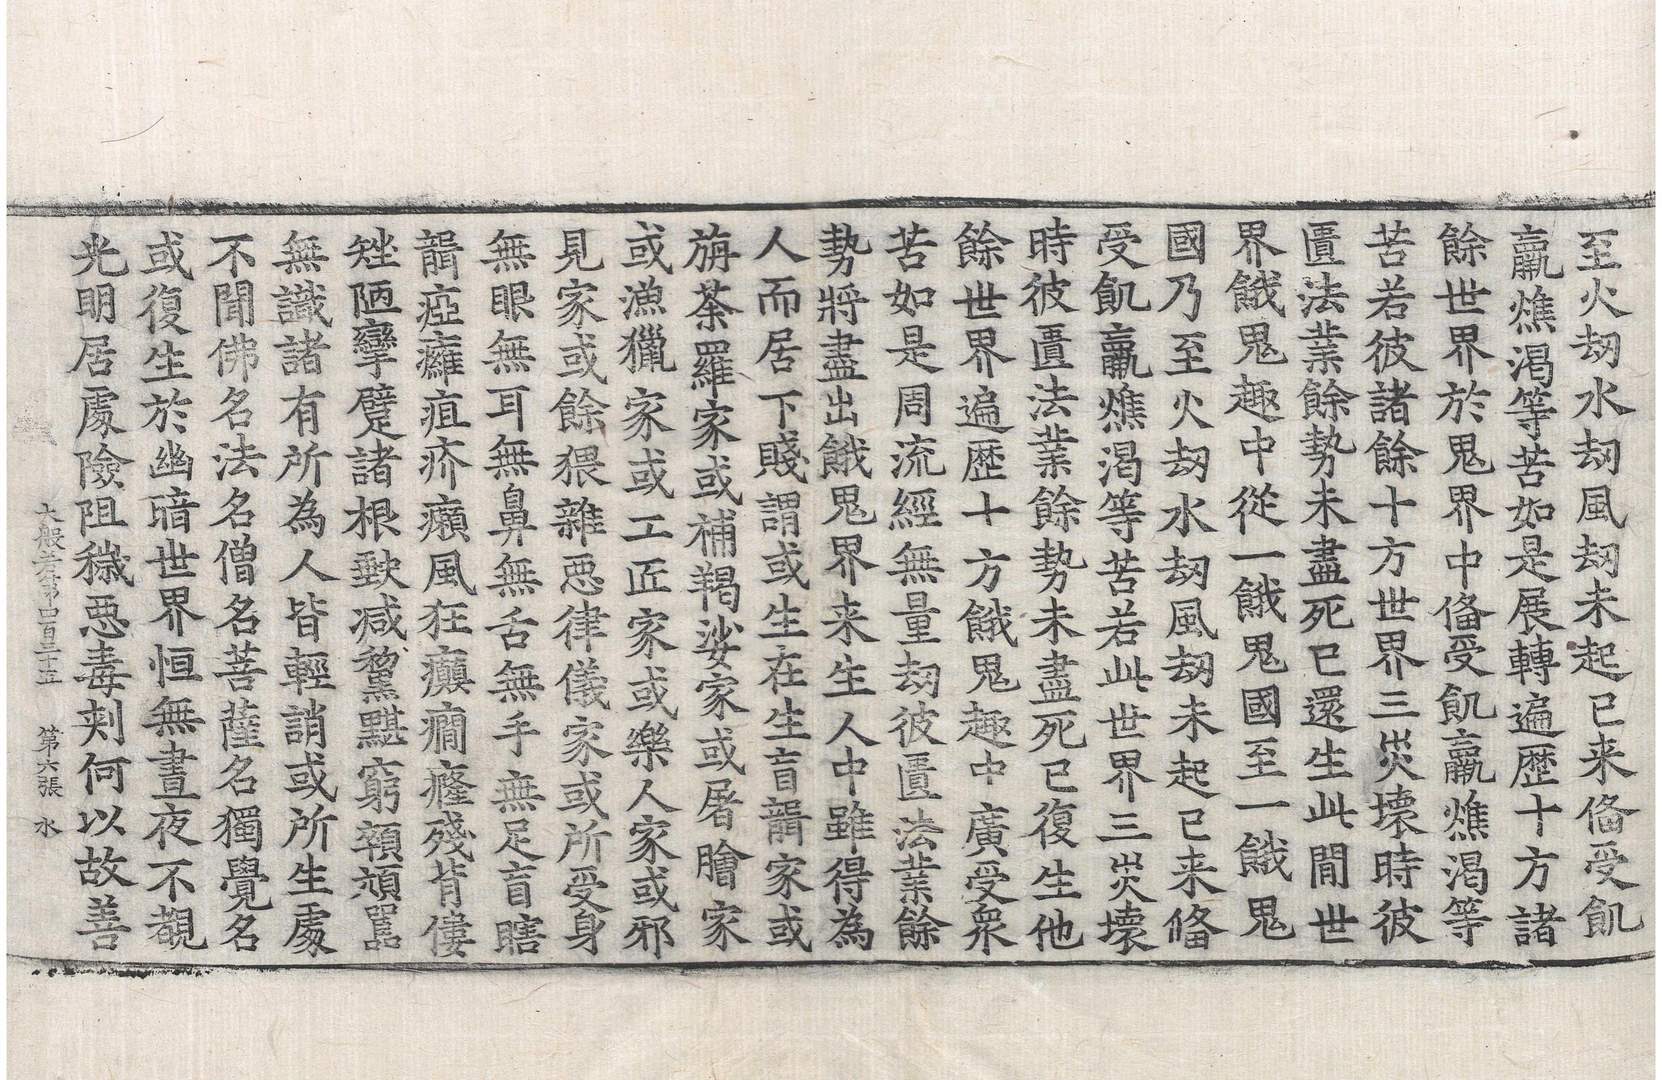 至火劫水劫風劫未起已来俻受飢
羸燋渴等苦如是展轉遍歷十方諸
餘世界於鬼界中俻受飢羸燋渴等
苦若彼諸餘十方世界三災壞時彼
匱法業餘勢未盡死已還生此間世
界餓鬼趣中從一餓鬼國至一餓鬼
國乃至火劫水劫風劫未起已来俻
受飢羸燋渴等苦若此世界三災壞
時彼匱法業餘勢未盡死已復生他
餘世界遍歷十方餓鬼趣中廣受衆
苦如是周流經無量劫彼匱法業餘
勢將盡出餓鬼界来生人中雖得為
人而居下賤謂或生在生盲聾家或
旃荼羅家或補羯娑家或屠膾家
或漁獵家或工匠家或樂人家或邪
見家或餘猥雜惡律儀家或所受身
無眼無耳無鼻無舌無手無足盲瞎
聾瘂癰疽疥癩風狂癲癇癃殘背僂
矬陋攣躄諸根缺減黧黮窮顇頑嚚
無識諸有所為人皆輕誚或所生處
不聞佛名法名僧名菩薩名獨覺名
或復生於幽暗世界恒無晝夜不覩
光明居處險阻穢惡毒刾何以故善
大般若第四百三十五 第六張 水